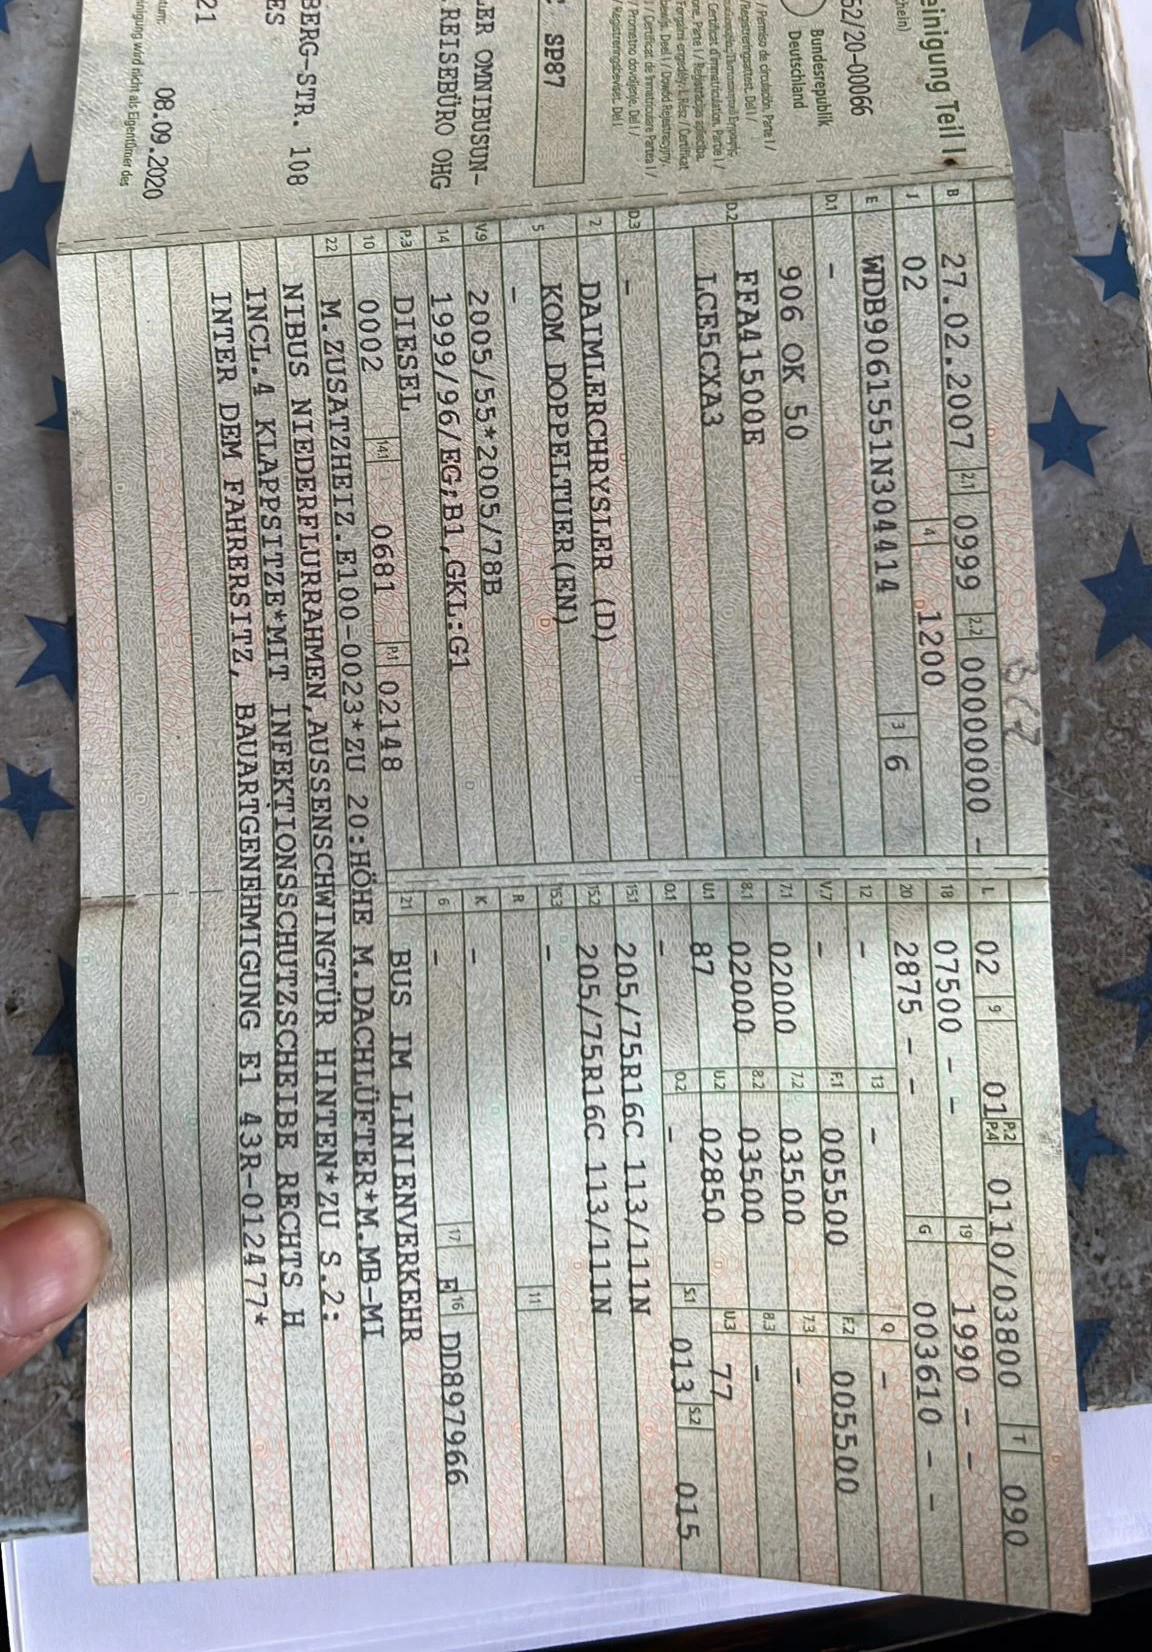 einigung Teil I
hein)
52/20-00066
Bundesrepublik
Deutschland
/ Permiso de circulación. Parte I /
Certificat d'immatriculation. Partie I /
SP87
ER OMNIBUSUN-
REISEBÜRO OHG
BERG-STR. 108
ES
08.09.2020
21
nigung wird nicht als Eigentümer des
B 27.02.2007 2.1 0999 2.2 00000000 -
J 02 4 1200
E WDB9061551N304414 3 6
D.1 -
906 OK 50
D.2 FFA41500E
LCE5CXA3
D.3 -
2 DAIMLERCHRYSLER (D)
5 KOM DOPPELTUER(EN)
-
V.9 2005/55*2005/78B
14 1999/96/EG;B1,GKL:G1
P.3 DIESEL
10 0002 14.1 0681 P.1 02148
L 02 9 01 P.2 P.4 0110/03800 T 090
18 07500 - - 19 1990 - -
20 2875 - - G 003610 - -
12 - 13 - Q -
V.7 - F.1 005500 F.2 005500
7.1 02000 7.2 03500 7.3 -
8.1 02000 8.2 03500 8.3 -
U.1 87 U.2 02850 U.3 77
O.1 - O.2 - S.1 013 S.2 015
15.1 205/75R16C 113/111N
15.2 205/75R16C 113/111N
15.3 -
R 11
K -
6 - 17 E 16 DD897966
21 BUS IM LINIENVERKEHR
22 M.ZUSATZHEIZ.E100-0023*ZU 20:HÖHE M.DACHLÜFTER*M.MB-MI
NIBUS NIEDERFLURRAHMEN,AUSSENSCHWINGTÜR HINTEN*ZU S.2:
INCL.4 KLAPPSITZE*MIT INFEKTIONSSCHUTZSCHEIBE RECHTS H
INTER DEM FAHRERSITZ, BAUARTGENEHMIGUNG E1 43R-012477*